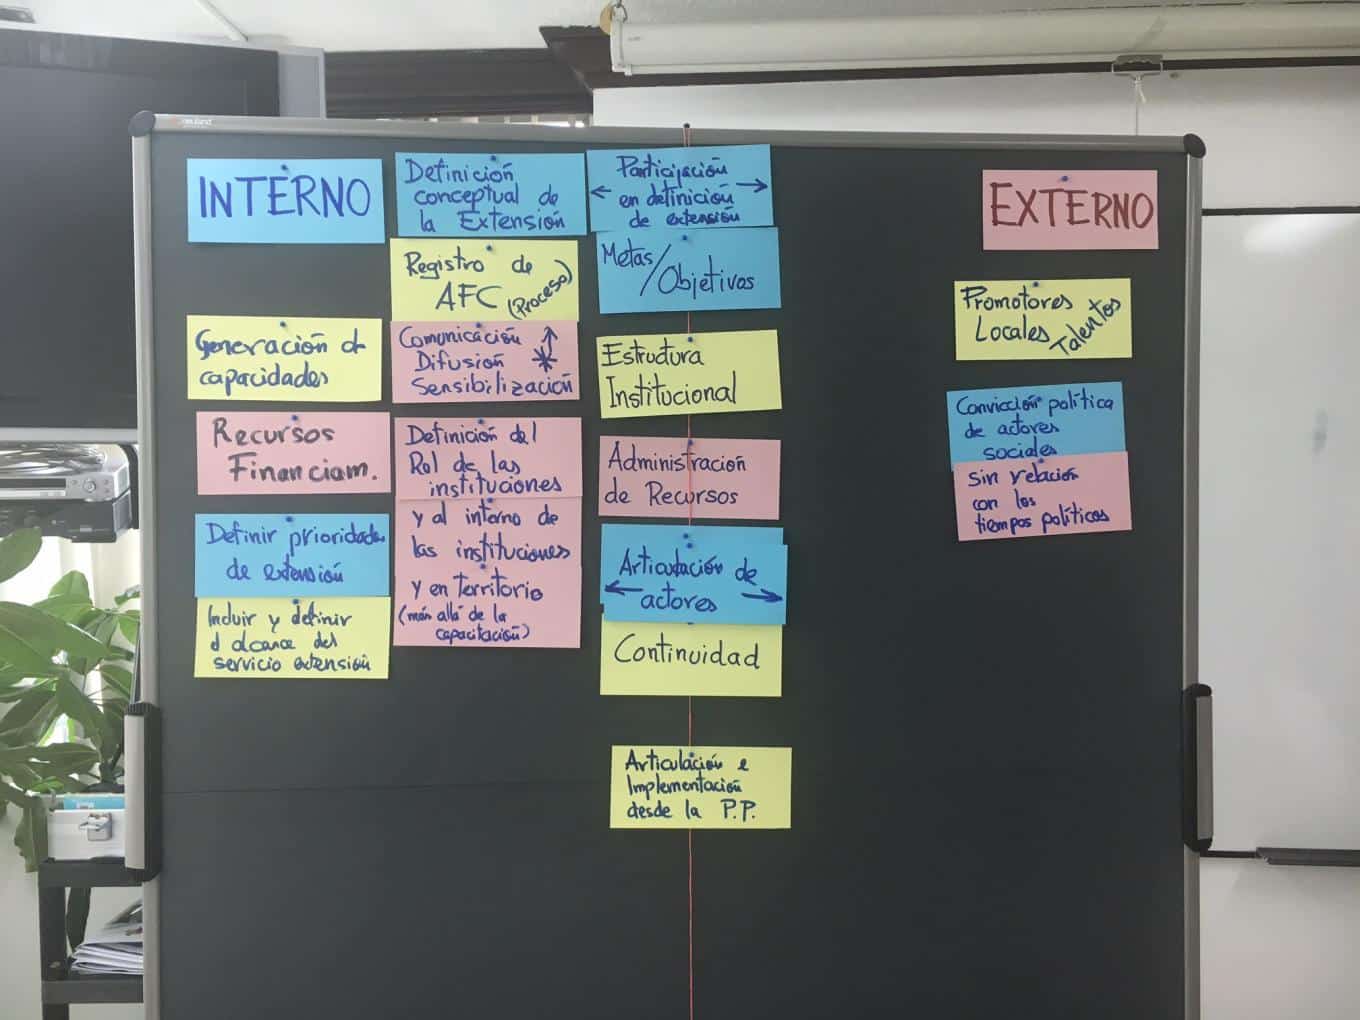 INTERNO
Generación de
capacidades
Recursos
Financiam.
Definir prioridades
de extensión
Incluir y definir
el alcance del
servicio extensión
Definición
conceptual de
la Extensión
Registro de
AFC (Proceso)
Comunicación
Difusión
Sensibilización
Definición del
Rol de las
instituciones
y al interno de
las instituciones
y en territorio
(más allá de la
capacitación)
Participación
en definición
de extensión
Metas/
Objetivos
Estructura
Institucional
Administración
de Recursos
Articulación de
actores
Continuidad
Articulación e
Implementación
desde la P.P.
EXTERNO
Promotores
Locales Talentos
Convicción política
de actores
sociales
sin relación
con los
tiempos políticos